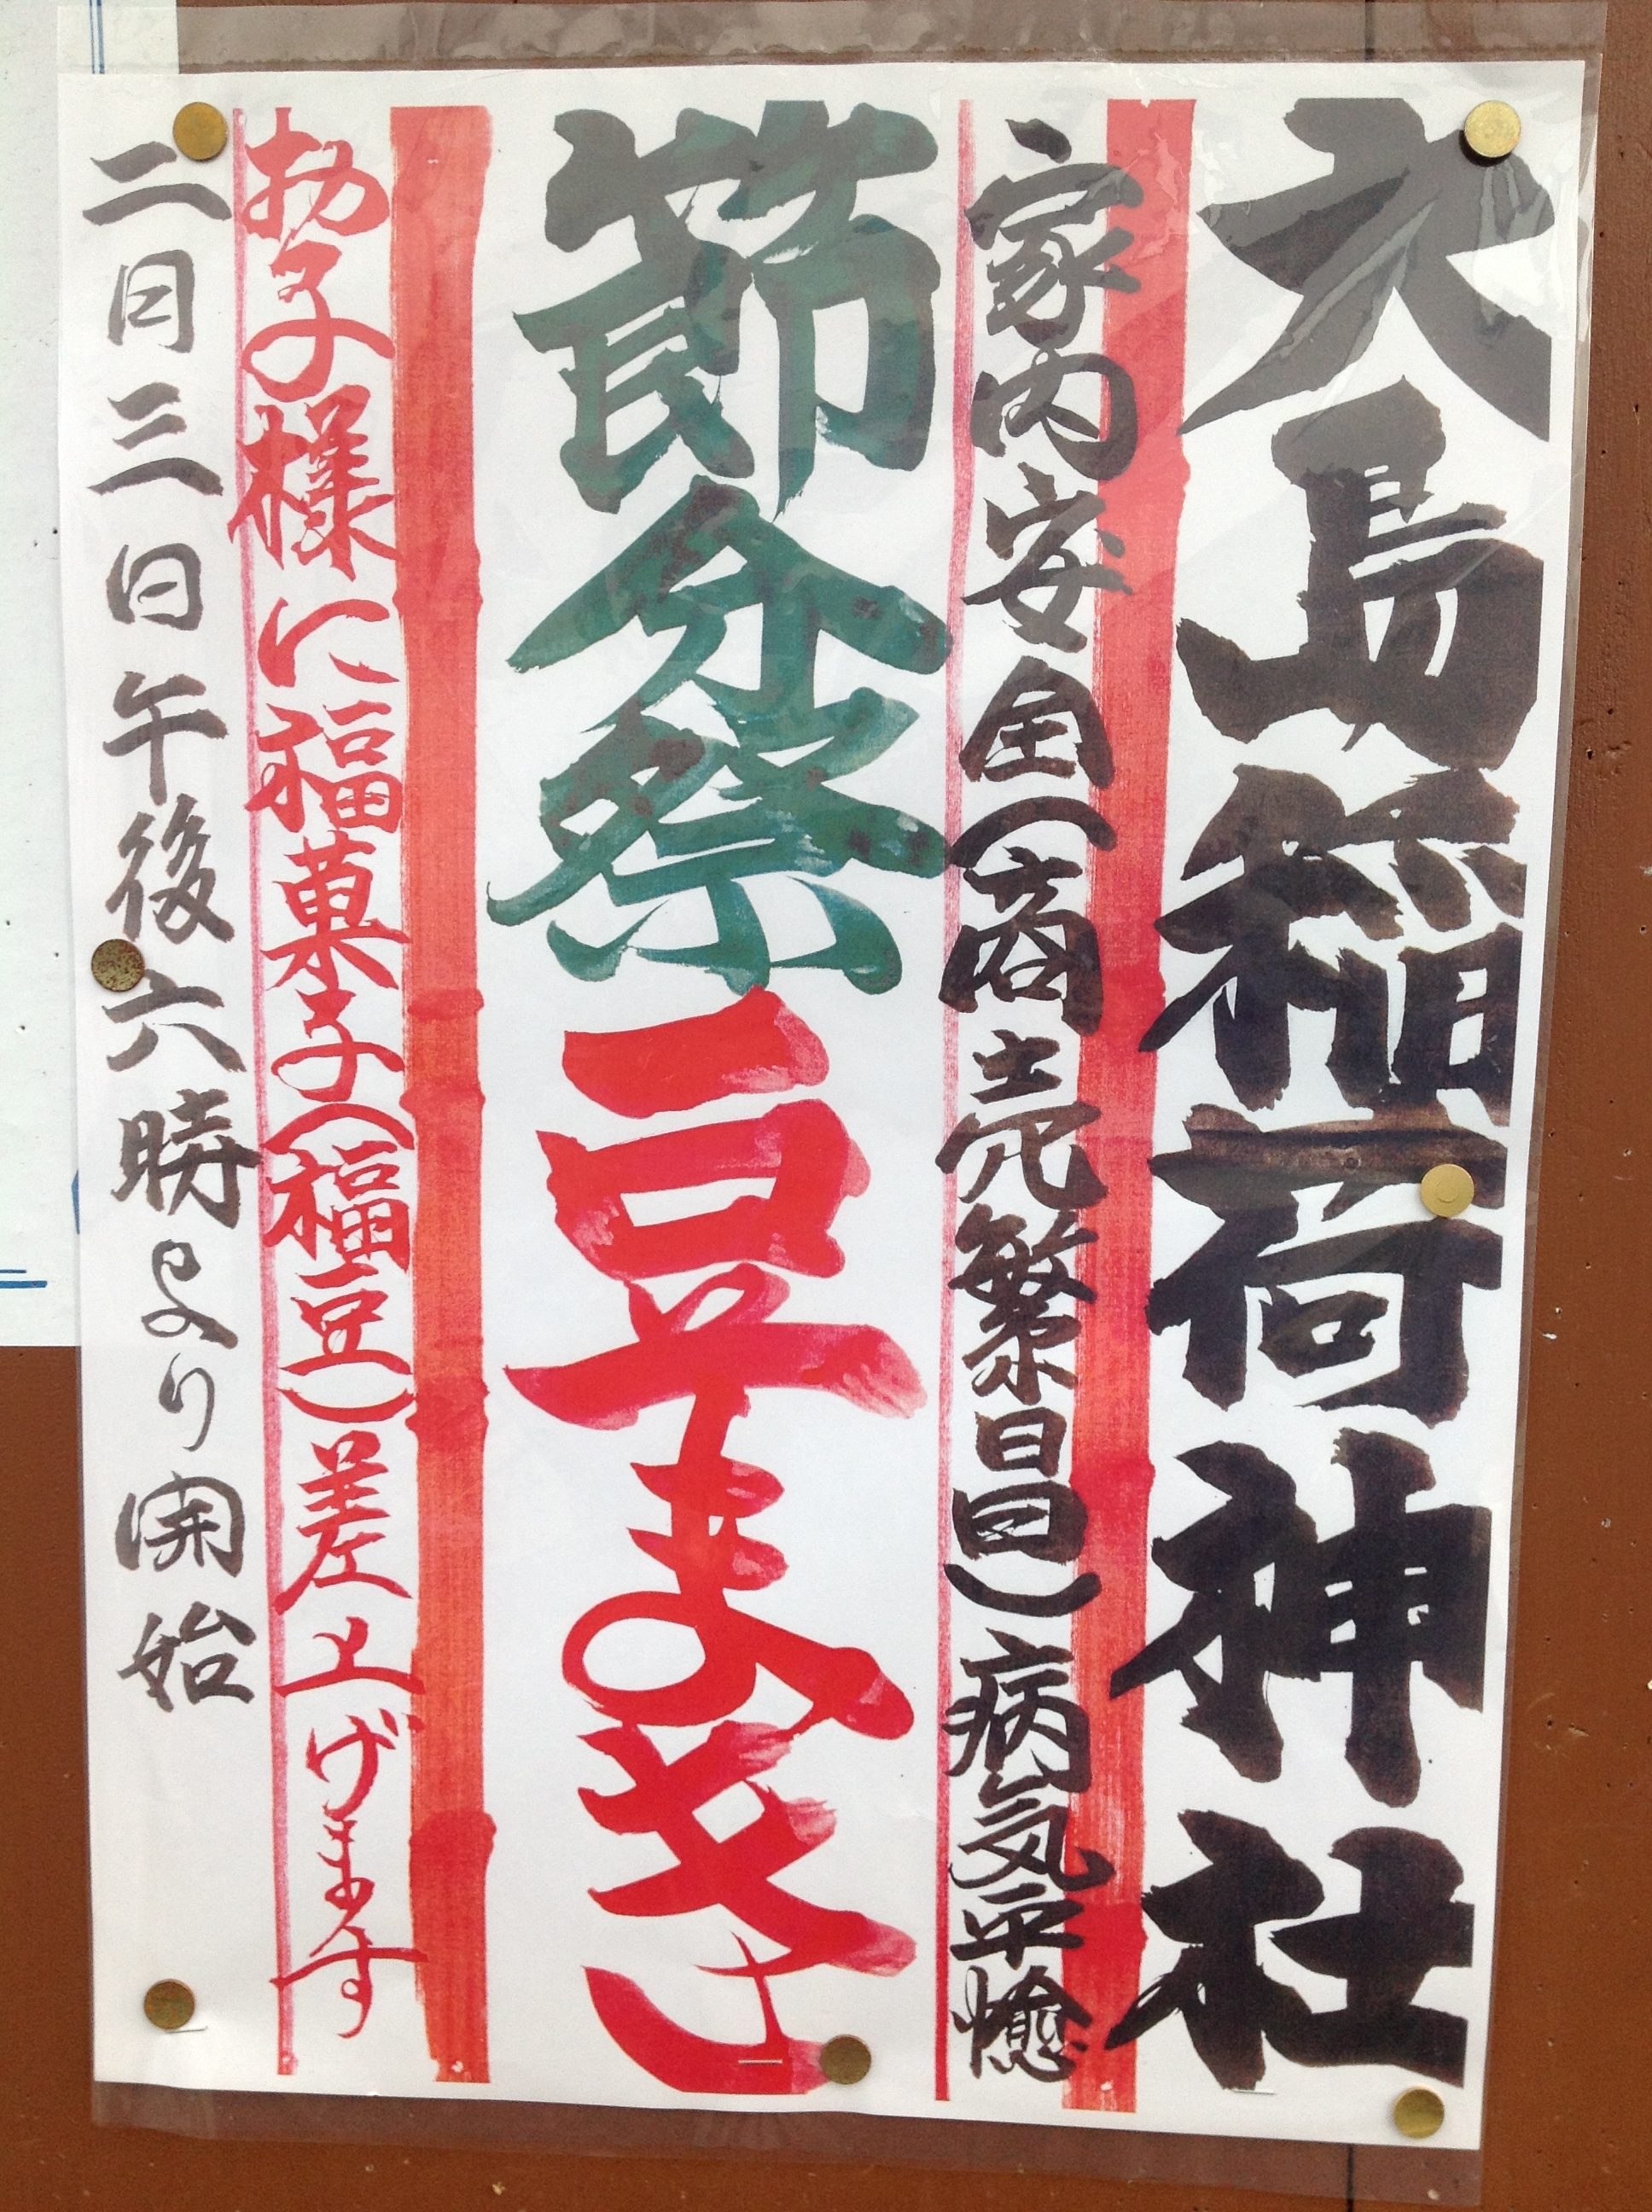 大島稲荷神社
家内安全(商売繁昌日)病気平癒
節分祭豆まき
お子様に福菓子(福豆)差上げます
二月三日午後六時より開始